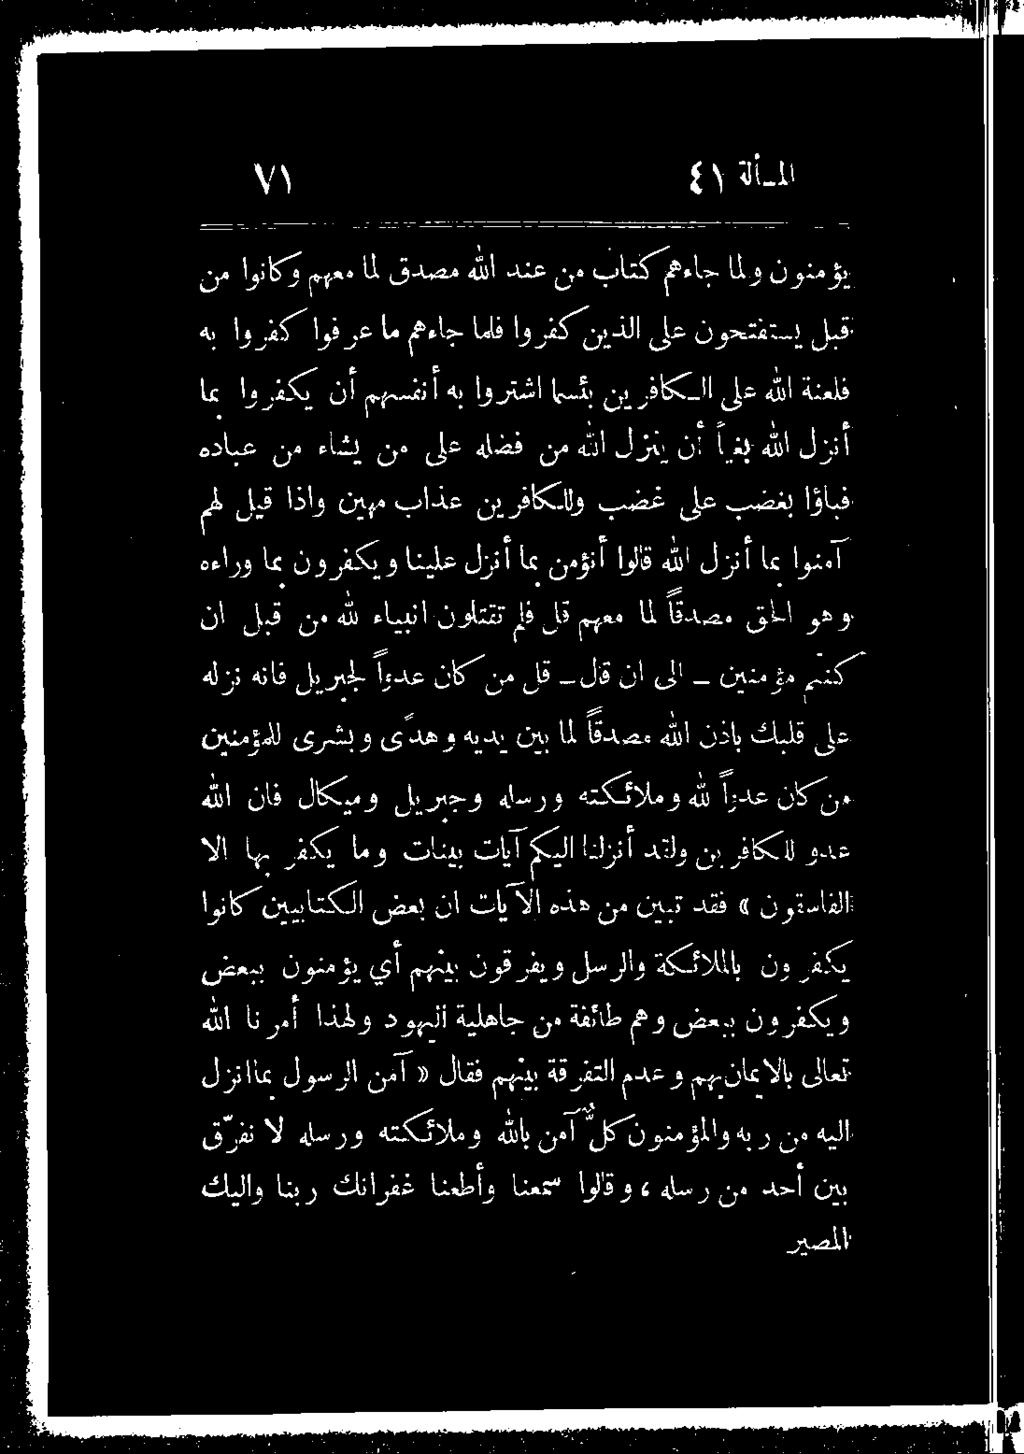 المسألة ٤١ ٧١
يؤمنون ولما جاءهم كتاب من عند الله مصدق لما معهم وكانوا من
قبل يستفتحون على الذين كفروا فلما جاءهم ما عرفوا كفروا به
فلعنة الله على الكافرين بئسما اشتروا به أنفسهم أن يكفروا بما
أنزل الله بغياً أن ينزل الله من فضله على من يشاء من عباده
فباؤا بغضب على غضب وللكافرين عذاب مهين واذا قيل لهم
آمنوا بما أنزل الله قالوا أنؤمن بما أنزل علينا ويكفرون بما وراءه
وهو الحق مصدقاً لما معهم قل فلم تقتلون انبياء لله من قبل ان
كنتم مؤمنين ـ الى ان قال ـ قل من كان عدواً لجبريل فانه نزله
على قلبك باذن الله مصدقاً لما بين يديه وهدًى وبشرى للمؤمنين
من كان عدواً لله وملائكته ورسله وجبريل وميكال فان الله
عدو للكافرين ولقد أنزلنا اليكم آيات بينات وما يكفر بها الا
الفاسقون » فقد تبين من هذه الآيات ان بعض الكتابيين كانوا
يكفرون بالملائكة والرسل ويفرقون بينهم أي يؤمنون ببعض
ويكفرون ببعض وهم طائفة من جاهلية اليهود ولهذا أمرنا الله
تعالى بالايمان بهم وعدم التفرقة بينهم فقال « آمن الرسول بما انزل
اليه من ربه والمؤمنون كلٌّ آمن بالله وملائكته ورسله لا نفرّق
بين أحد من رسله ، وقالوا سمعنا وأطعنا غفرانك ربنا واليك
المصير